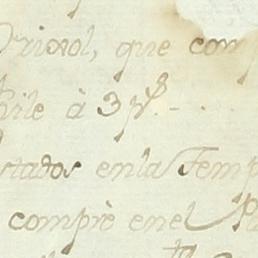 Orioxol, que com
hile à 3 p.s - ..
stados enla Temp
comprè enel Pa